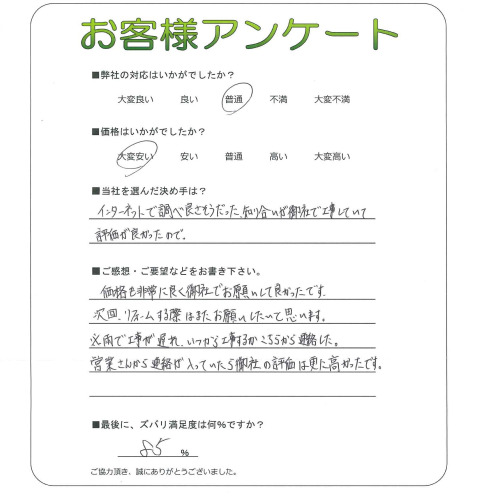 お客様アンケート
■弊社の対応はいかがでしたか？
大変良い 良い 普通 不満 大変不満
■価格はいかがでしたか？
大変安い 安い 普通 高い 大変高い
■当社を選んだ決め手は？
インターネットで調べ良さそうだった、知り合いが御社で工事していて
評価が良かったので。
■ご感想・ご要望などをお書き下さい。
価格も非常に良く御社でお願いして良かったです。
次回、リフォームする際はまたお願いしたいて思います。
※雨で工事が遅れ、いつから工事するかこちらから連絡した。
営業さんから連絡が入っていたら御社の評価は更に高かったです。
■最後に、ズバリ満足度は何％ですか？
85 ％
ご協力頂き、誠にありがとうございました。